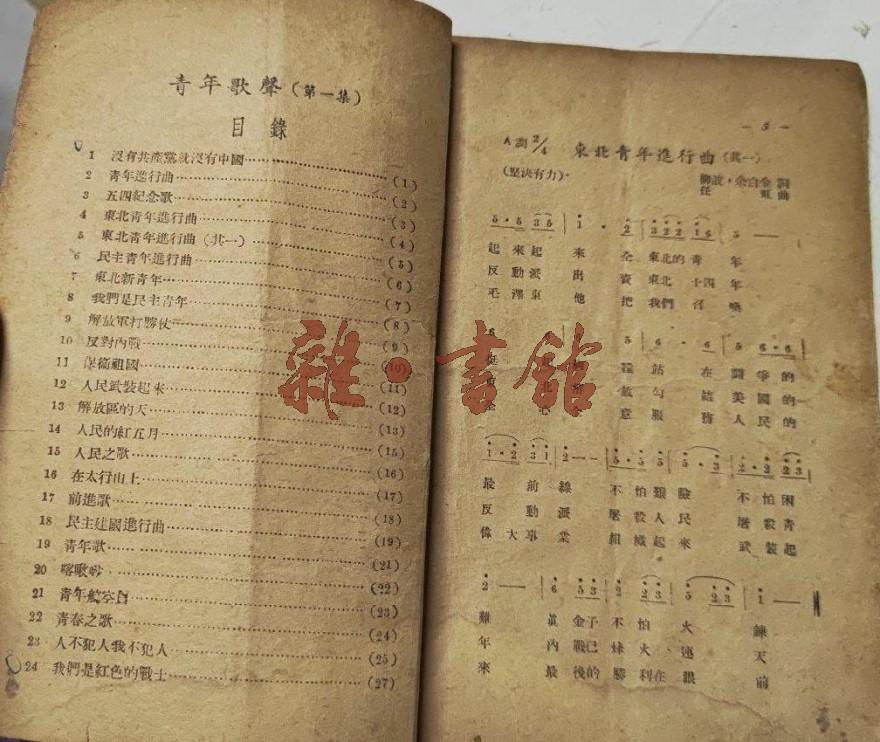 青年歌聲(第一集)
目錄
1 沒有共產黨就沒有中國 (1)
2 青年進行曲 (2)
3 五四紀念歌 (3)
4 東北青年進行曲 (4)
5 東北青年進行曲(其一) (5)
6 民主青年進行曲 (6)
7 東北新青年 (7)
8 我們是民主青年 (8)
9 解放軍打勝仗 (9)
10 反對內戰 (10)
11 保衛祖國 (11)
12 人民武裝起來 (12)
13 解放區的天 (13)
14 人民的紅五月 (15)
15 人民之歌 (16)
16 在太行山上 (17)
17 前進歌 (18)
18 民主建國進行曲 (19)
19 青年歌 (21)
20 喀瞅 (22)
21 青年航空員 (23)
22 青春之歌 (24)
23 人不犯人我不犯人 (25)
24 我們是紅色的戰士 (27)
雜·書館
- 5 -
A調 2/4 東北青年進行曲(其一)
(堅決有力)
詞
任虹 曲
5·5 3 5 1· 2 3 2 2 1 6 5 —
起來起來 全東北的青年
反動派出賣東北十四年
毛澤東他把我們召喚
站在鬥爭的
勾結美國的
意服務人民的
1·2 3 1 2 —
最前線 不怕艱險 不怕困
反動派 屠殺人民 屠殺青
偉大事業 組織起來 武裝起
2 — 6 5 3 2 3 5 2 3 1 —
難 真金子不怕火鍊
年 內戰已 火連天
來 最後的勝利在眼前